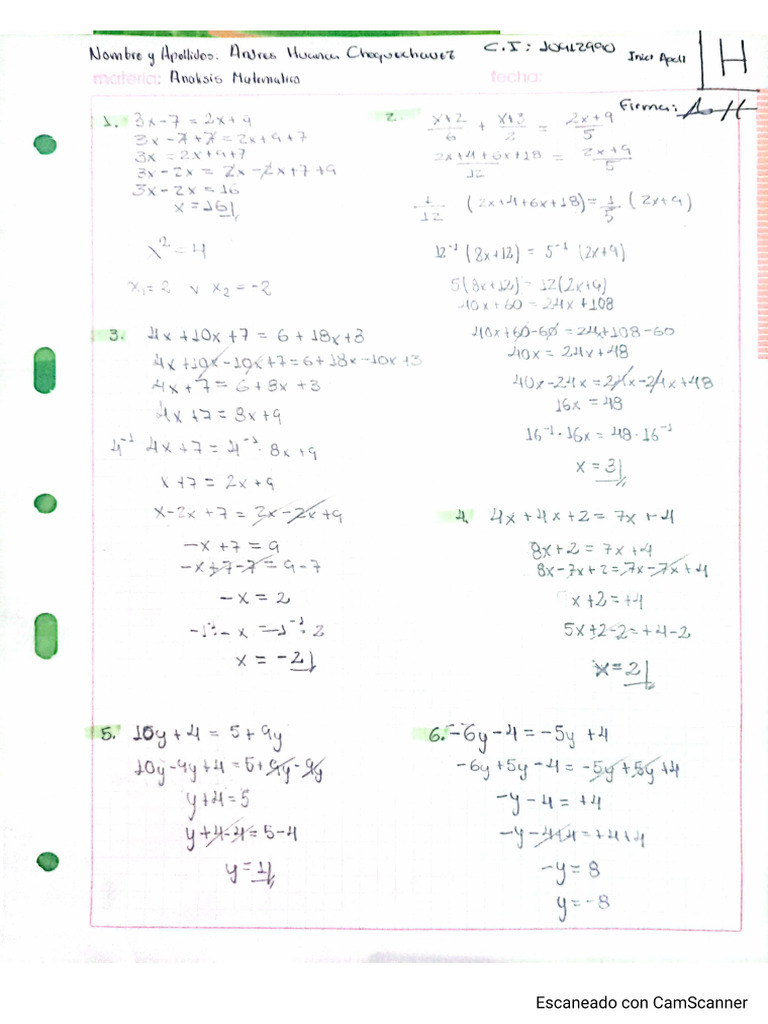 Nombre y Apellidos: Andres Huanca Choquechavez C.I: 10912990 Inici Apell H
materia: Analisis Matematico fecha:
Firma:
1. 3x-7 = 2x+9
3x-7+7 = 2x+9+7
3x = 2x+9+7
3x-2x = 2x-2x+7+9
3x-2x = 16
x = 16
x² = 4
x₁ = 2 v x₂ = -2
2. (x+2)/6 + (x+3)/2 = (2x+9)/5
(2x+4+6x+18)/12 = (2x+9)/5
1/12 (2x+4+6x+18) = 1/5 (2x+9)
12⁻¹ (8x+12) = 5⁻¹ (2x+9)
5(8x+12) = 12(2x+9)
40x+60 = 24x+108
40x+60-60 = 24+108-60
40x = 24x+48
40x-24x = 24x-24x+48
16x = 48
16⁻¹·16x = 48·16⁻¹
x = 3
3. 4x+10x+7 = 6+18x+3
4x+10x-10x+7 = 6+18x-10x+3
4x+7 = 6+8x+3
4x+7 = 8x+9
4⁻¹ 4x+7 = 4⁻¹· 8x+9
x+7 = 2x+9
x-2x+7 = 2x-2x+9
-x+7 = 9
-x+7-7 = 9-7
-x = 2
x = -2
4. 4x+4x+2 = 7x+4
8x+2 = 7x+4
8x-7x+2 = 7x-7x+4
x+2 = +4
5x+2-2 = +4-2
x = 2
5. 10y+4 = 5+9y
10y-9y+4 = 5+9y-9y
y+4 = 5
y+4-4 = 5-4
y = 1
6. -6y-4 = -5y+4
-6y+5y-4 = -5y+5y+4
-y-4 = +4
-y-4+4 = +4+4
-y = 8
y = -8
Escaneado con CamScanner